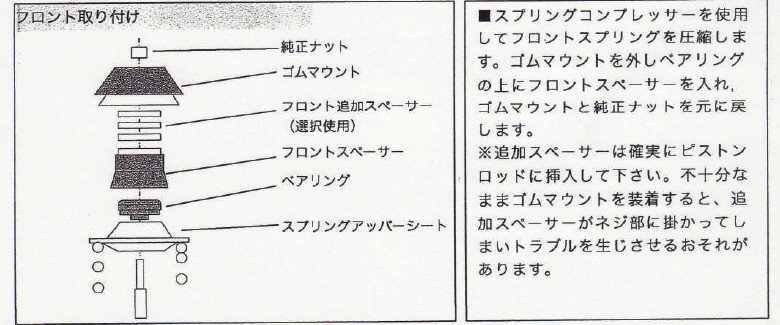 フロント取り付け
純正ナット
ゴムマウント
フロント追加スペーサー
（選択使用）
フロントスペーサー
ベアリング
スプリングアッパーシート
■スプリングコンプレッサーを使用
してフロントスプリングを圧縮しま
す。ゴムマウントを外しベアリング
の上にフロントスペーサーを入れ,
ゴムマウントと純正ナットを元に戻
します。
※追加スペーサーは確実にピストン
ロッドに挿入して下さい。不十分な
ままゴムマウントを装着すると、追
加スペーサーがネジ部に掛かってし
まいトラブルを生じさせるおそれが
あります。